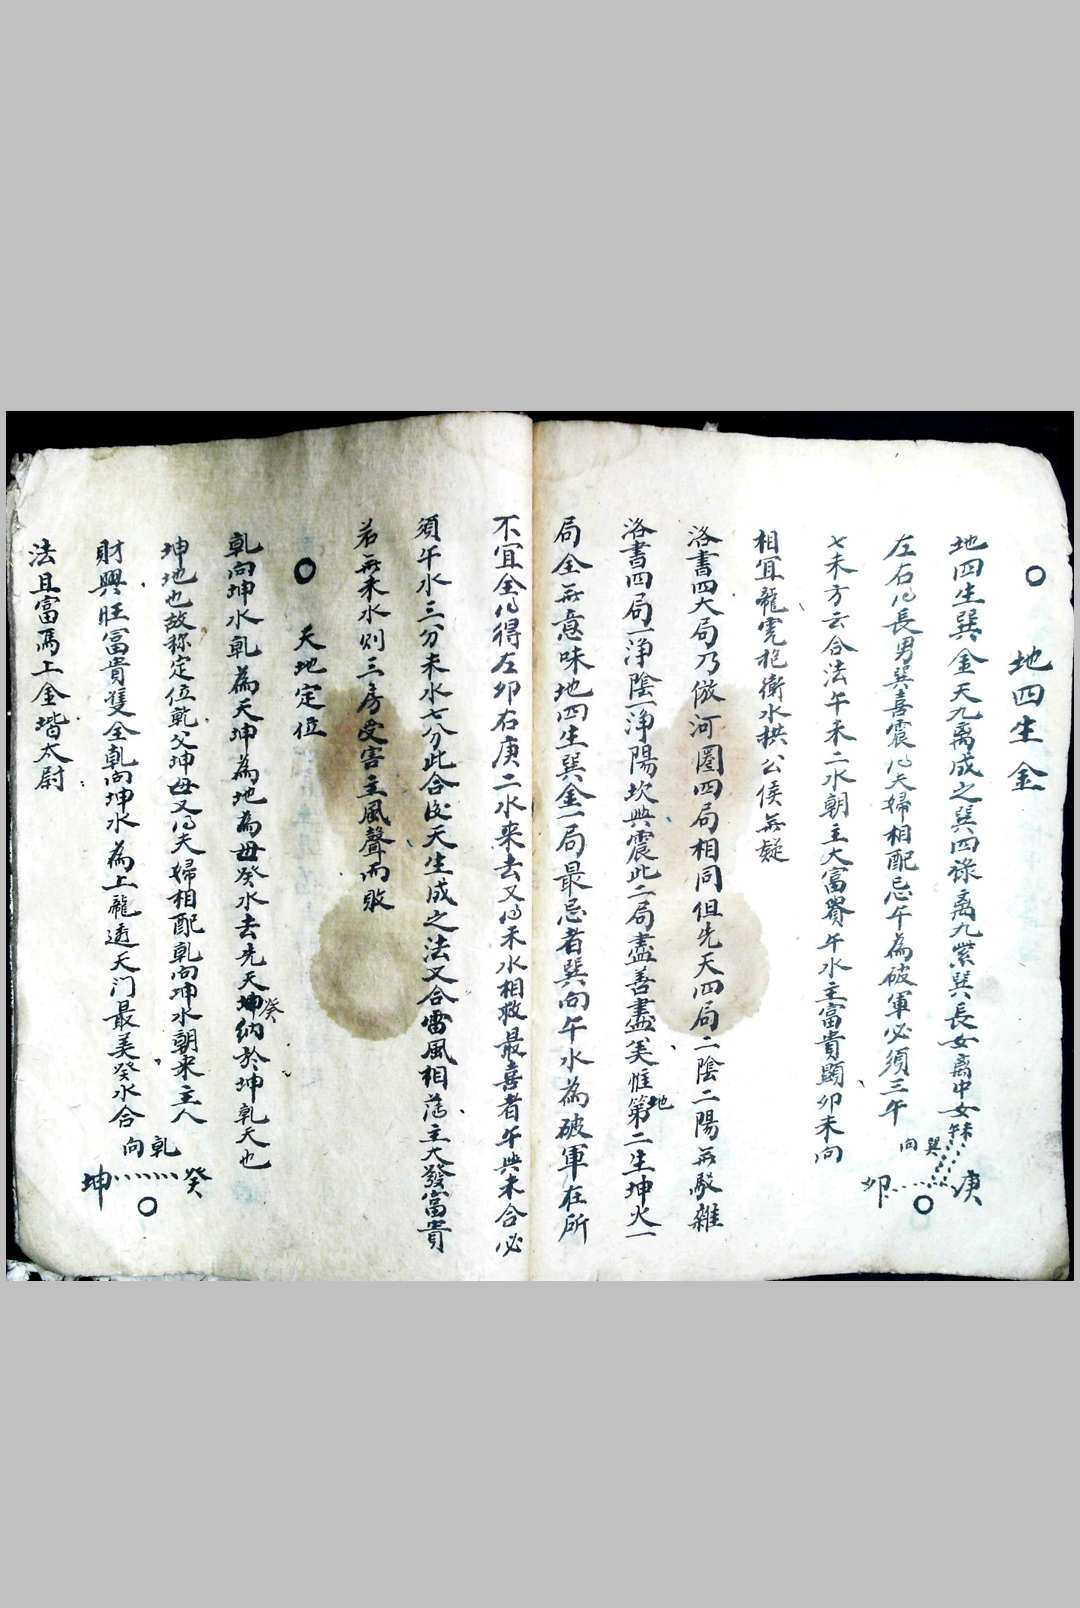 ○ 地四生金
地四生巽金天九离成之巽四祿离九紫巽長女离中女
未
午
巽
向
庚
卯
左右以長男巽喜震以夫婦相配忌午為破軍必須三午
七未方云合法午未二水朝主大富貴午水主富貴顕卯未向
相宜龍虎抱衛水拱公侯無疑
洛書四大局乃倣河圖四局相同但先天四局二陰二陽無駁雜
洛書四局一淨陰一淨陽坎與震此二局盡善盡美惟第二生坤火一
地
局全無意味地四生巽金一局最忌者巽向午水為破軍在所
不宜全以得左卯右庚二水來去又以未水相救最喜者午與未合必
須午水三分未水七分此合後天生成之法又合雷風相薄主大發富貴
若無未水則三房受害主風聲而敗
○ 天地定位
乾向坤水乾為天坤為地為母癸水去先天坤納於坤乾天也
癸
坤地也故称定位乾父坤母又以夫婦相配乾向坤水朝來主人
財興旺富貴雙全乾向坤水為上龍透天门最美癸水合
乾
向
癸
坤
法且富馬上金堦太尉